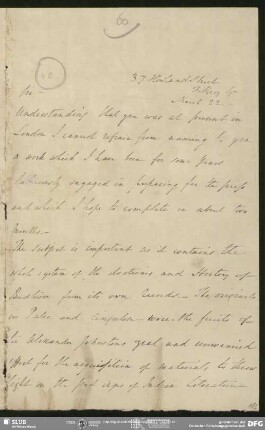 60
40
37 Howland Street
Fitzroy Sq
March 22
Sir
Understanding that you was at present in
London I cannot refrain from naming to you
a work which I have been for some years
laboriously engaged in preparing for the press
and which I hope to complete in about two
months.—
The subject is important as it contains the
whole system of the doctrines and History of
Buddhism from its own records.— The originals
in Palee and Cingalese were the fruits of
Sir Alexander Johnston's zeal and unwearied
effort for the acquisition of materials to throw
light on the first ages of Indian Literature—
SLUB
DFG